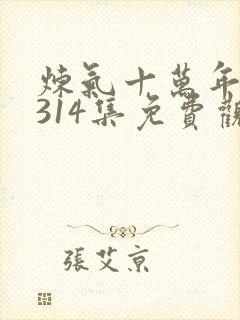 煉氣十萬年
314集免費觀
張艾京